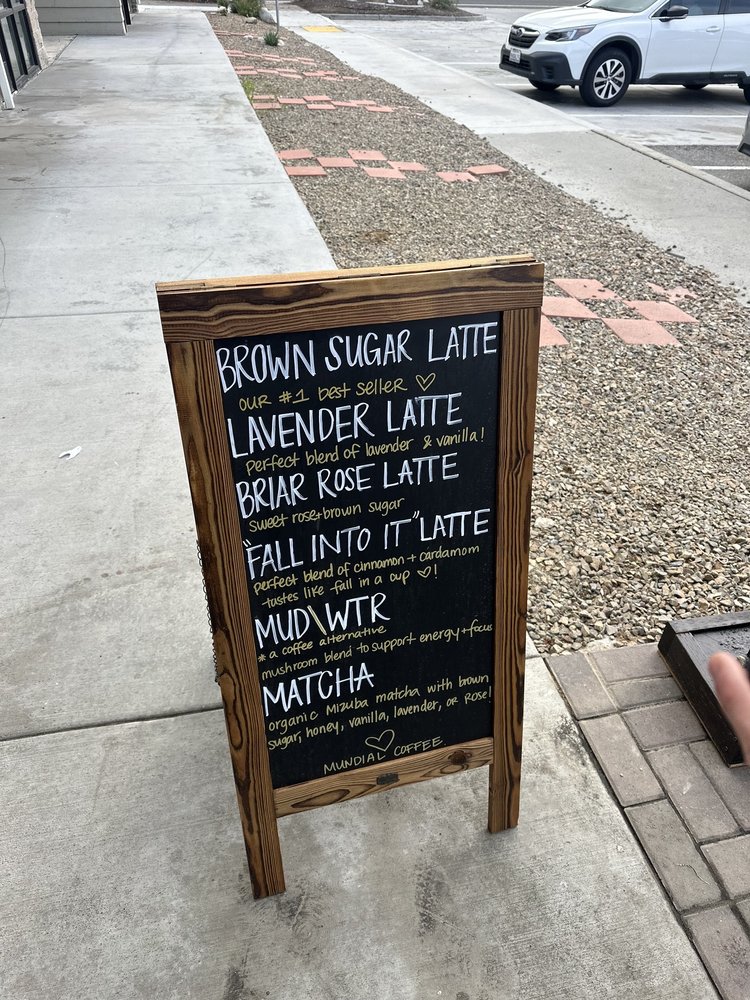 BROWN SUGAR LATTE
our #1 best seller ♡
LAVENDER LATTE
perfect blend of lavender & vanilla!
BRIAR ROSE LATTE
sweet rose+brown sugar
"FALL INTO IT" LATTE
perfect blend of cinnamon + cardamom
tastes like fall in a cup ♡!
MUD\WTR
* a coffee alternative
mushroom blend to support energy+focus
MATCHA
organic Mizuba matcha with brown
sugar, honey, vanilla, lavender, or rose!
♡
MUNDIAL COFFEE.